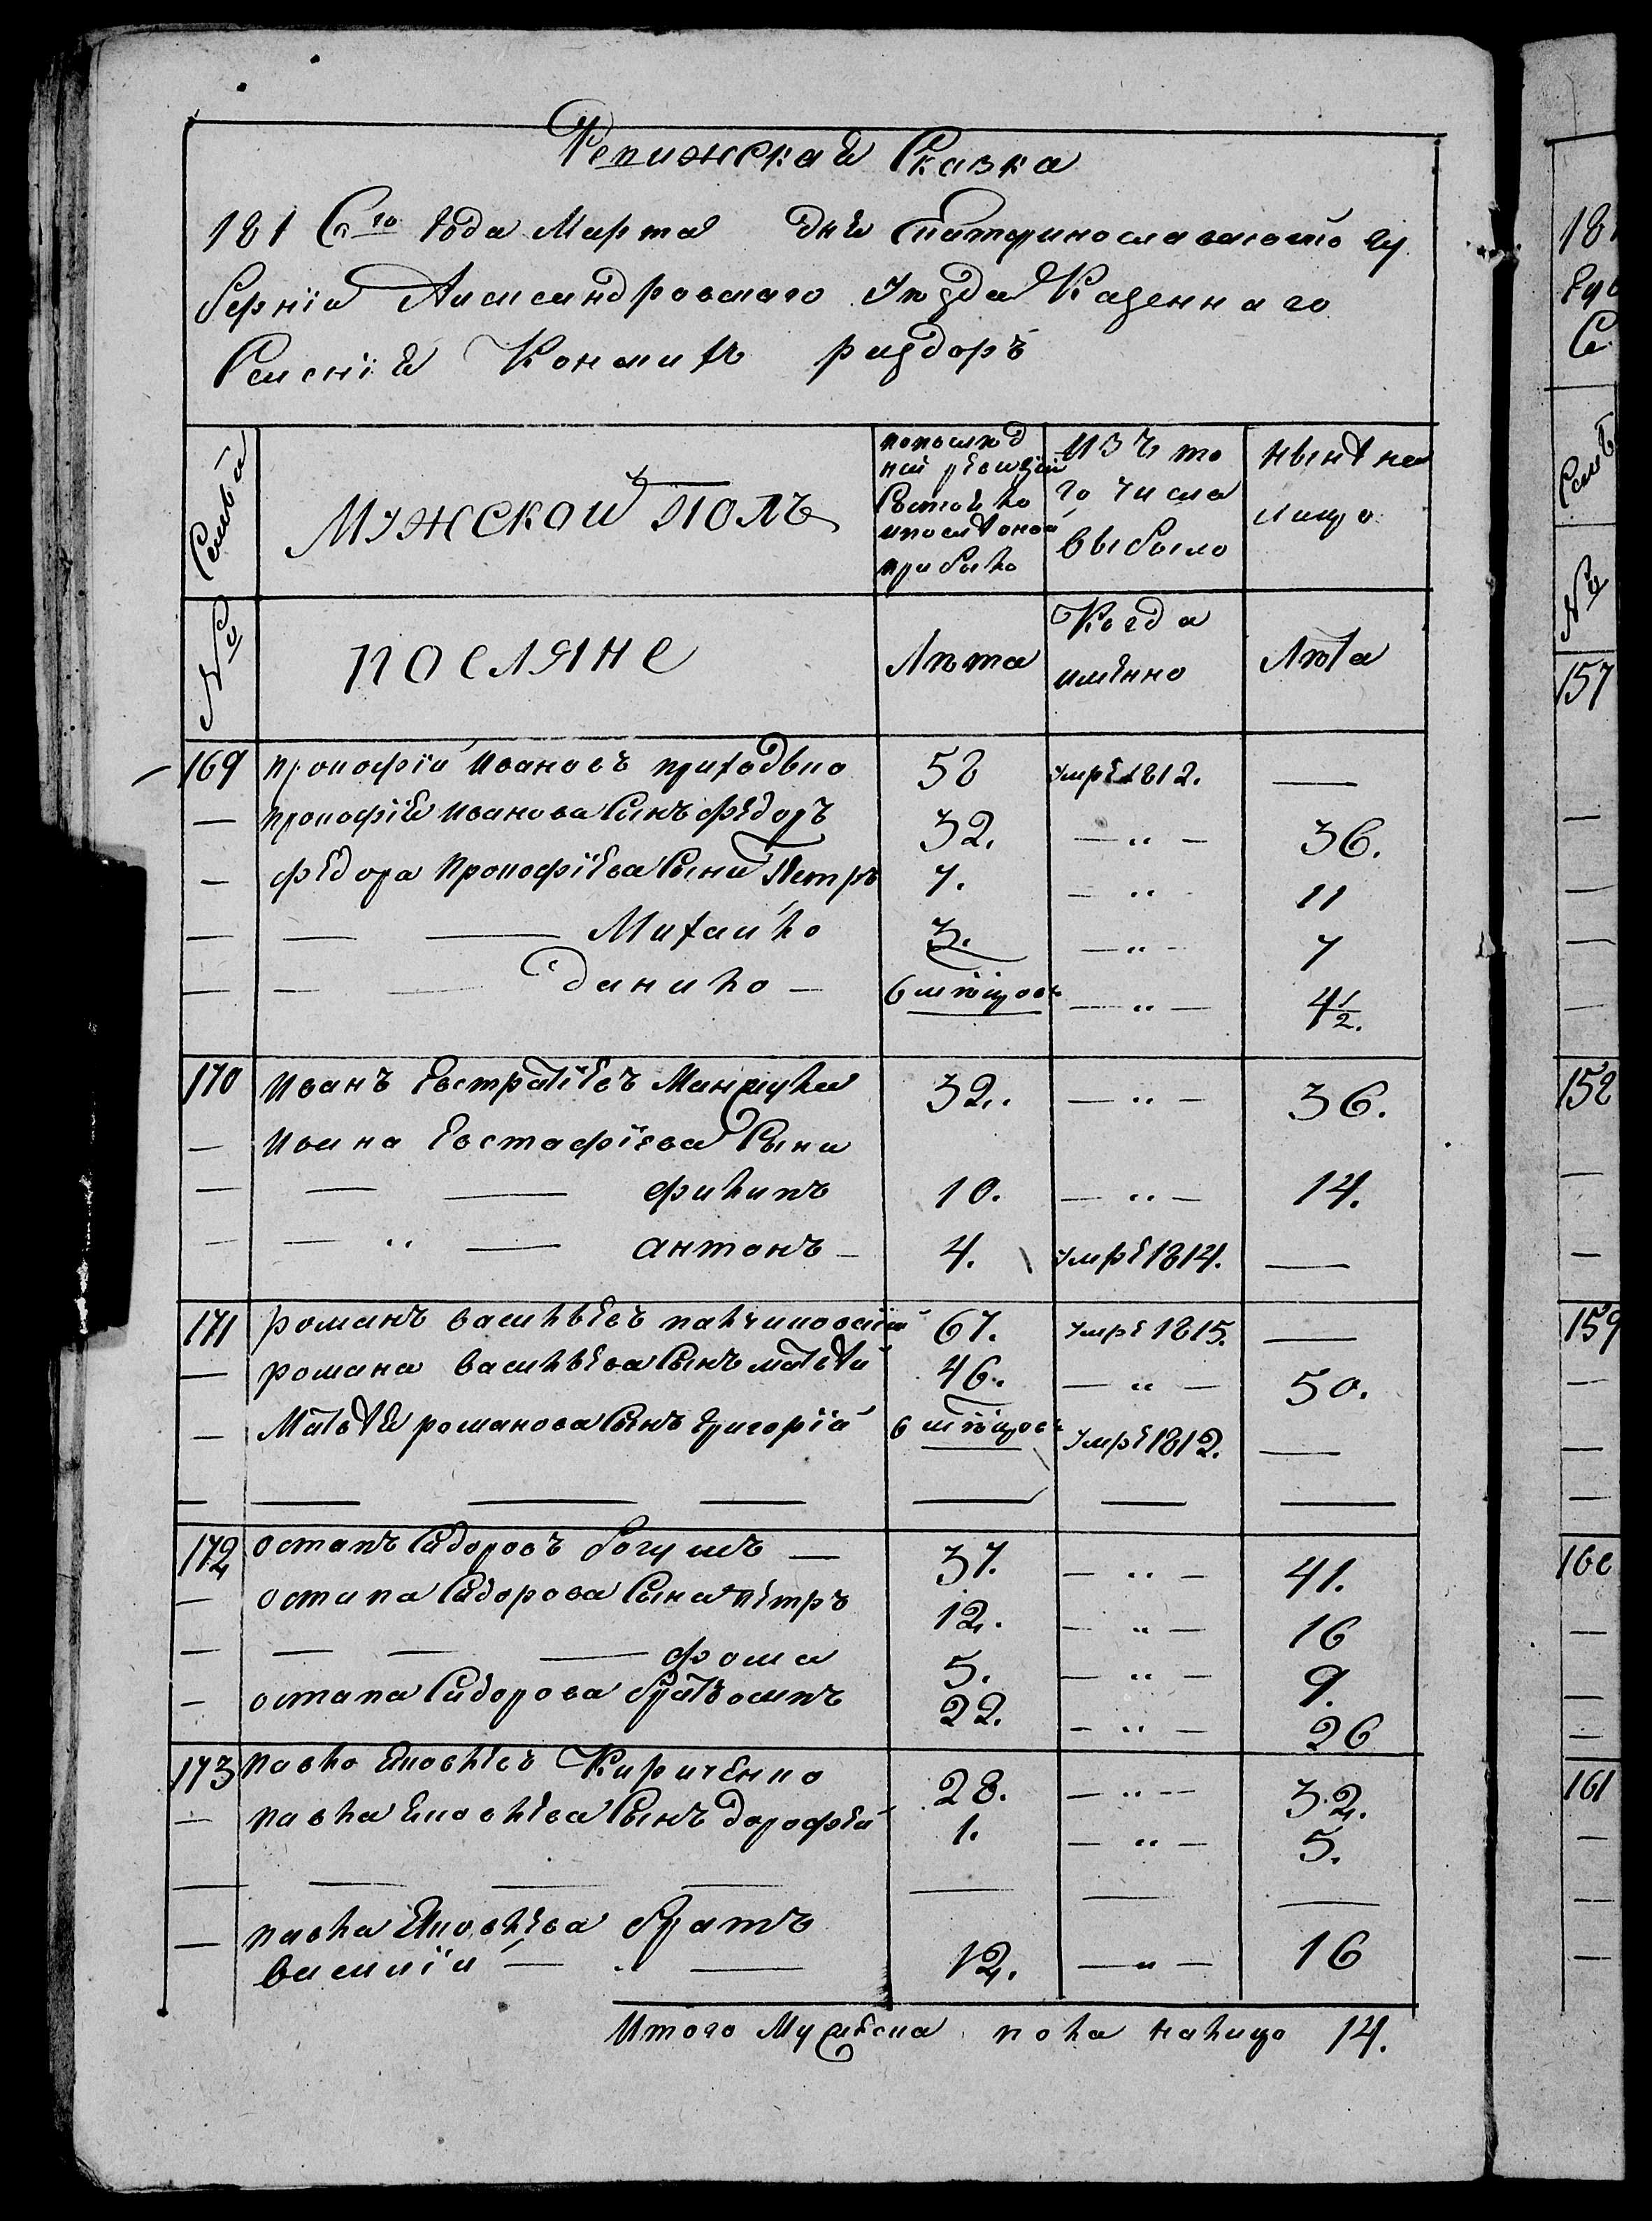 Ревижская Сказка
1816го Года Марта дня Екатеринославской гу
бернiи Александровскаго уѣзда Казеннаго
Селенiя Конскихъ раздоръ
Семья
Мужской полъ
по послѣд
ней ревизiи
Состояло
и после оной
прибыло
Изъ то
го числа
выбыло
Ныне на
лицо
№
поселяне
Лѣта
Когда
имѣнно
Лѣта
169 прокофiй Ивановъ приходько 58 умре 1812. —
— прокофiя Иванова Сынъ федоръ 32. — " — 36.
— федора Прокофiева Сыны Петръ 7. — " — 11
— — — Михайло 3. — " — 7
— — — Данило — 6 месяцовъ — " — 4½.
170 Иванъ Евстратiевъ 32. — " — 36.
— Ивана Евстафiева Сыны
— — — филипъ 10. — " — 14.
— — " — антонъ — 4. умре 1814. —
171 романъ васильевъ 67. умре 1815. —
— романа васильева Сынъ матвей 46. — " — 50.
— Матвея романова Сынъ григорiй 6 месяцовъ умре 1812. —
— — — — — — —
172 остапъ Сидоровъ — 37. — " — 41.
— остапа Сидорова Сыны петръ 12. — " — 16
— — — — фома 5. — " — 9.
— остапа Сидорова братъ осипъ 22. — " — 26
173 павло Яковлевъ Кириченко 28. — " — 32.
— павла Яковлева Сынъ дорофей 1. — " — 5.
— — — — — — —
— павла Яковлева братъ
василiй — " — 12. — " — 16
Итого Мужеска пола налицо 14.
18
Гу
Се
Семь
№
157
—
—
—
—
158
—
—
159
—
—
—
160
—
—
—
161
—
—
—